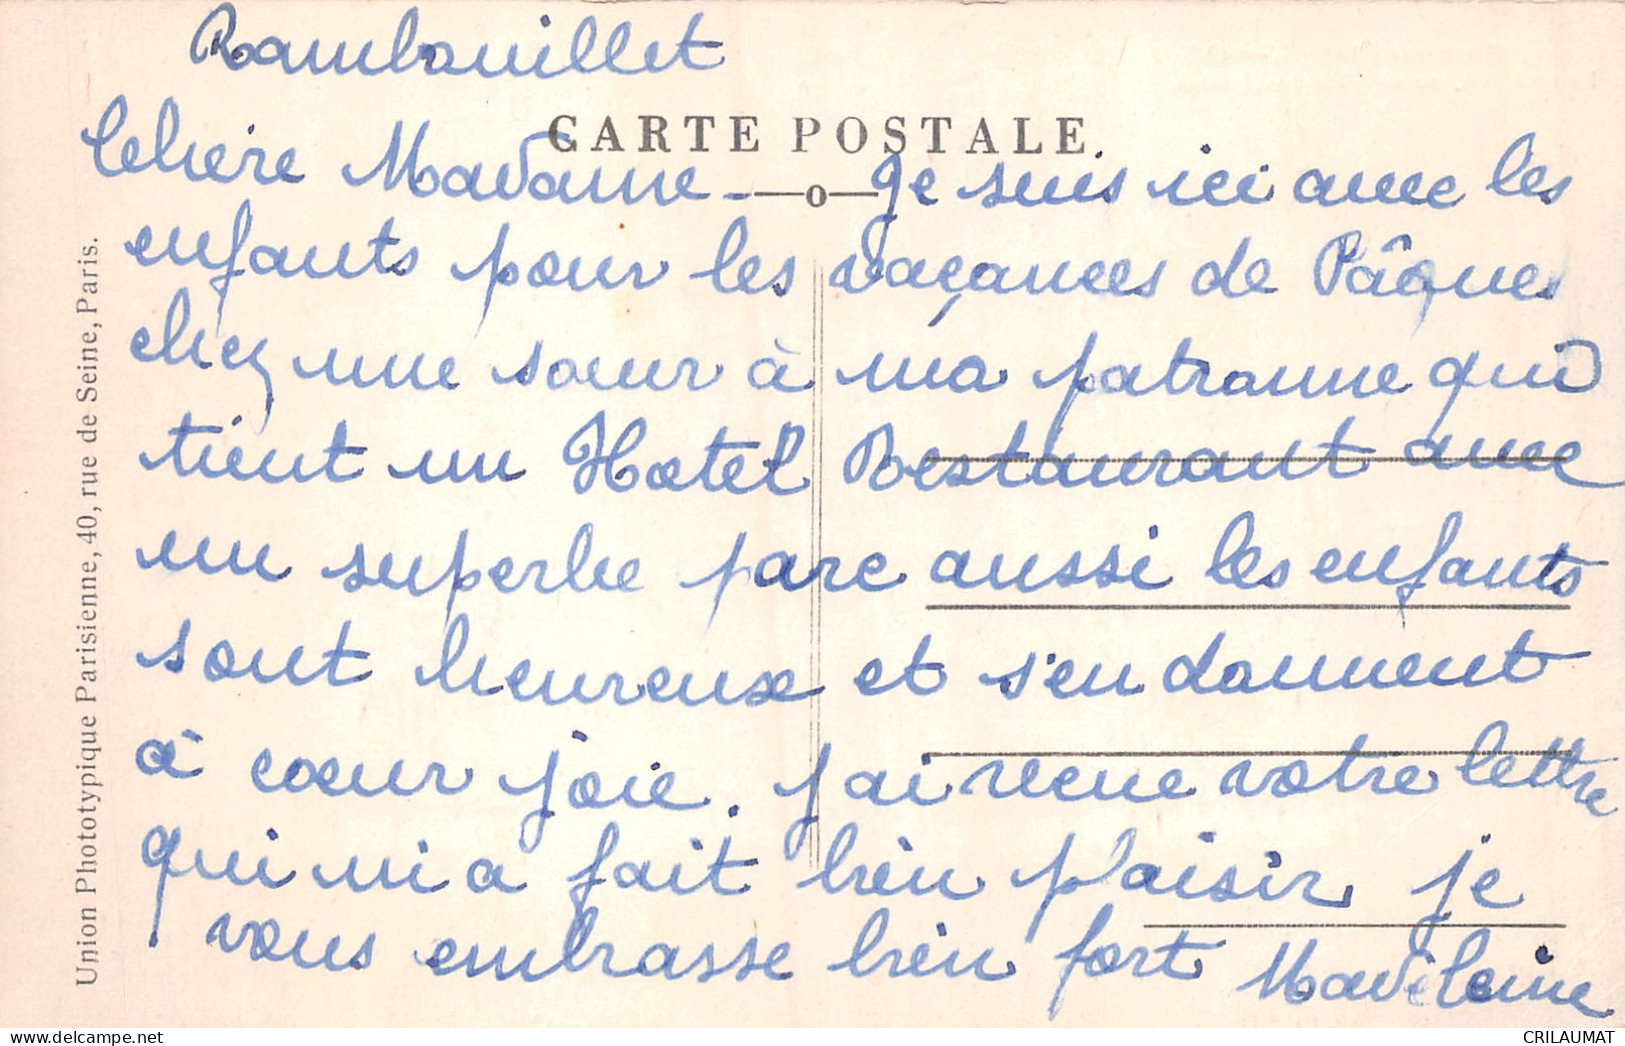 Rambouillet
CARTE POSTALE.
Chère Madame - Je suis ici avec les
enfants pour les vaçances de Pâques
chez une sœur à ma patronne qui
tient un Hotel Restaurant avec
un superbe parc aussi les enfants
sont heureux et s'en donnent
à cœur joie. J'ai recue votre lettre
qui m'a fait bien plaisir je
vous embrasse bien fort Madeleine
Union Phototypique Parisienne, 40, rue de Seine, Paris.
CRILAUMAT